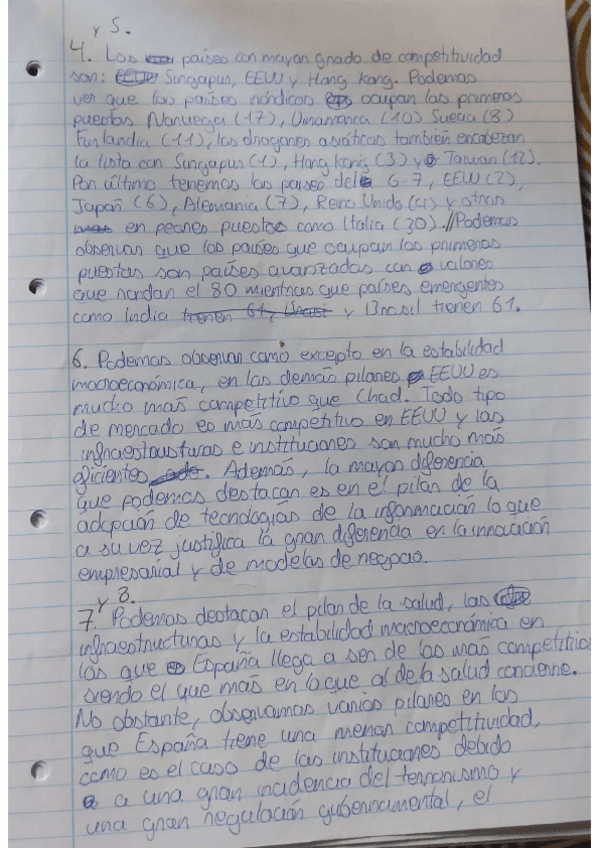 y 5.
4. Los países con mayor grado de competitividad
son: Singapur, EEUU y Hong Kong. Podemos
ver que los países nórdicos ocupan los primeros
puestos Noruega (17), Dinamarca (10) Suecia (8)
Finlandia (11), los dragones asiáticos también encabezan
la lista con Singapur (1), Hong Kong (3) y Taiwan (12).
Por último tenemos los países del G-7, EEUU (2),
Japón (6), Alemania (7), Reino Unido (9) y otros
en peores puestos como Italia (30).//Podemos
observar que los países que ocupan los primeros
puestos son países avanzados con valores
que rondan el 80 mientras que países emergentes
como India y Brasil tienen 61.
6. Podemos observar como excepto en la estabilidad
macroeconómica, en los demás pilares EEUU es
mucho más competitivo que Chad. Todo tipo
de mercado es más competitivo en EEUU y las
infraestructuras e instituciones son mucho más
eficientes. Además, la mayor diferencia
que podemos destacar es en el pilar de la
adopción de tecnologías de la información lo que
a su vez justifica la gran diferencia en la innovación
empresarial y de modelos de negocio.
7. y 8. Podemos destacar el pilar de la salud, las
infraestructuras y la estabilidad macroeconómica en
los que España llega a ser de los más competitivos
siendo el que más en lo que al de la salud concierne.
No obstante, observamos varios pilares en los
que España tiene una menor competitividad,
como es el caso de las instituciones debido
a una gran incidencia del terrorismo y
una gran regulación gubernamental, el